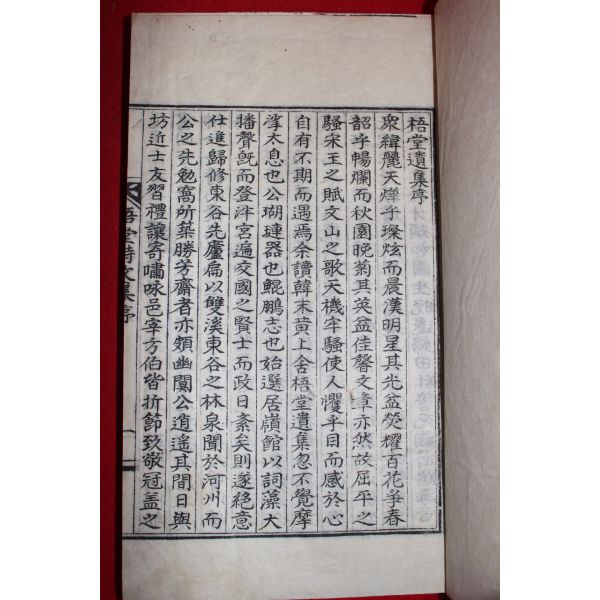 梧堂遺集序
衆緯麗天煒乎璨炫而晨漢明星其光益熒耀百花爭春
韶乎暢爛而秋園晚菊其英益佳馨文章亦然故屈平之
騷宋王之賦文山之歌天機牢騷使人懼乎目而感於心
自有不期而遇焉余讀韓末黄上舍梧堂遺集忽不覺摩
挲太息也公瑚璉器也鯤鵬志也始選居嶺館以詞藻大
播聲旣而登泮宮遍交國之賢士而政日紊矣則遂絕意
仕進歸修東谷先廬扁以雙溪東谷之林泉聞於河州而
公之先勉窩所築勝芳齋者亦頗幽闃公逍遥其間日與
坊近士友習禮讓寄嘯咏邑宰方伯皆折節致敬冠盖之
梧堂詩文集序
一